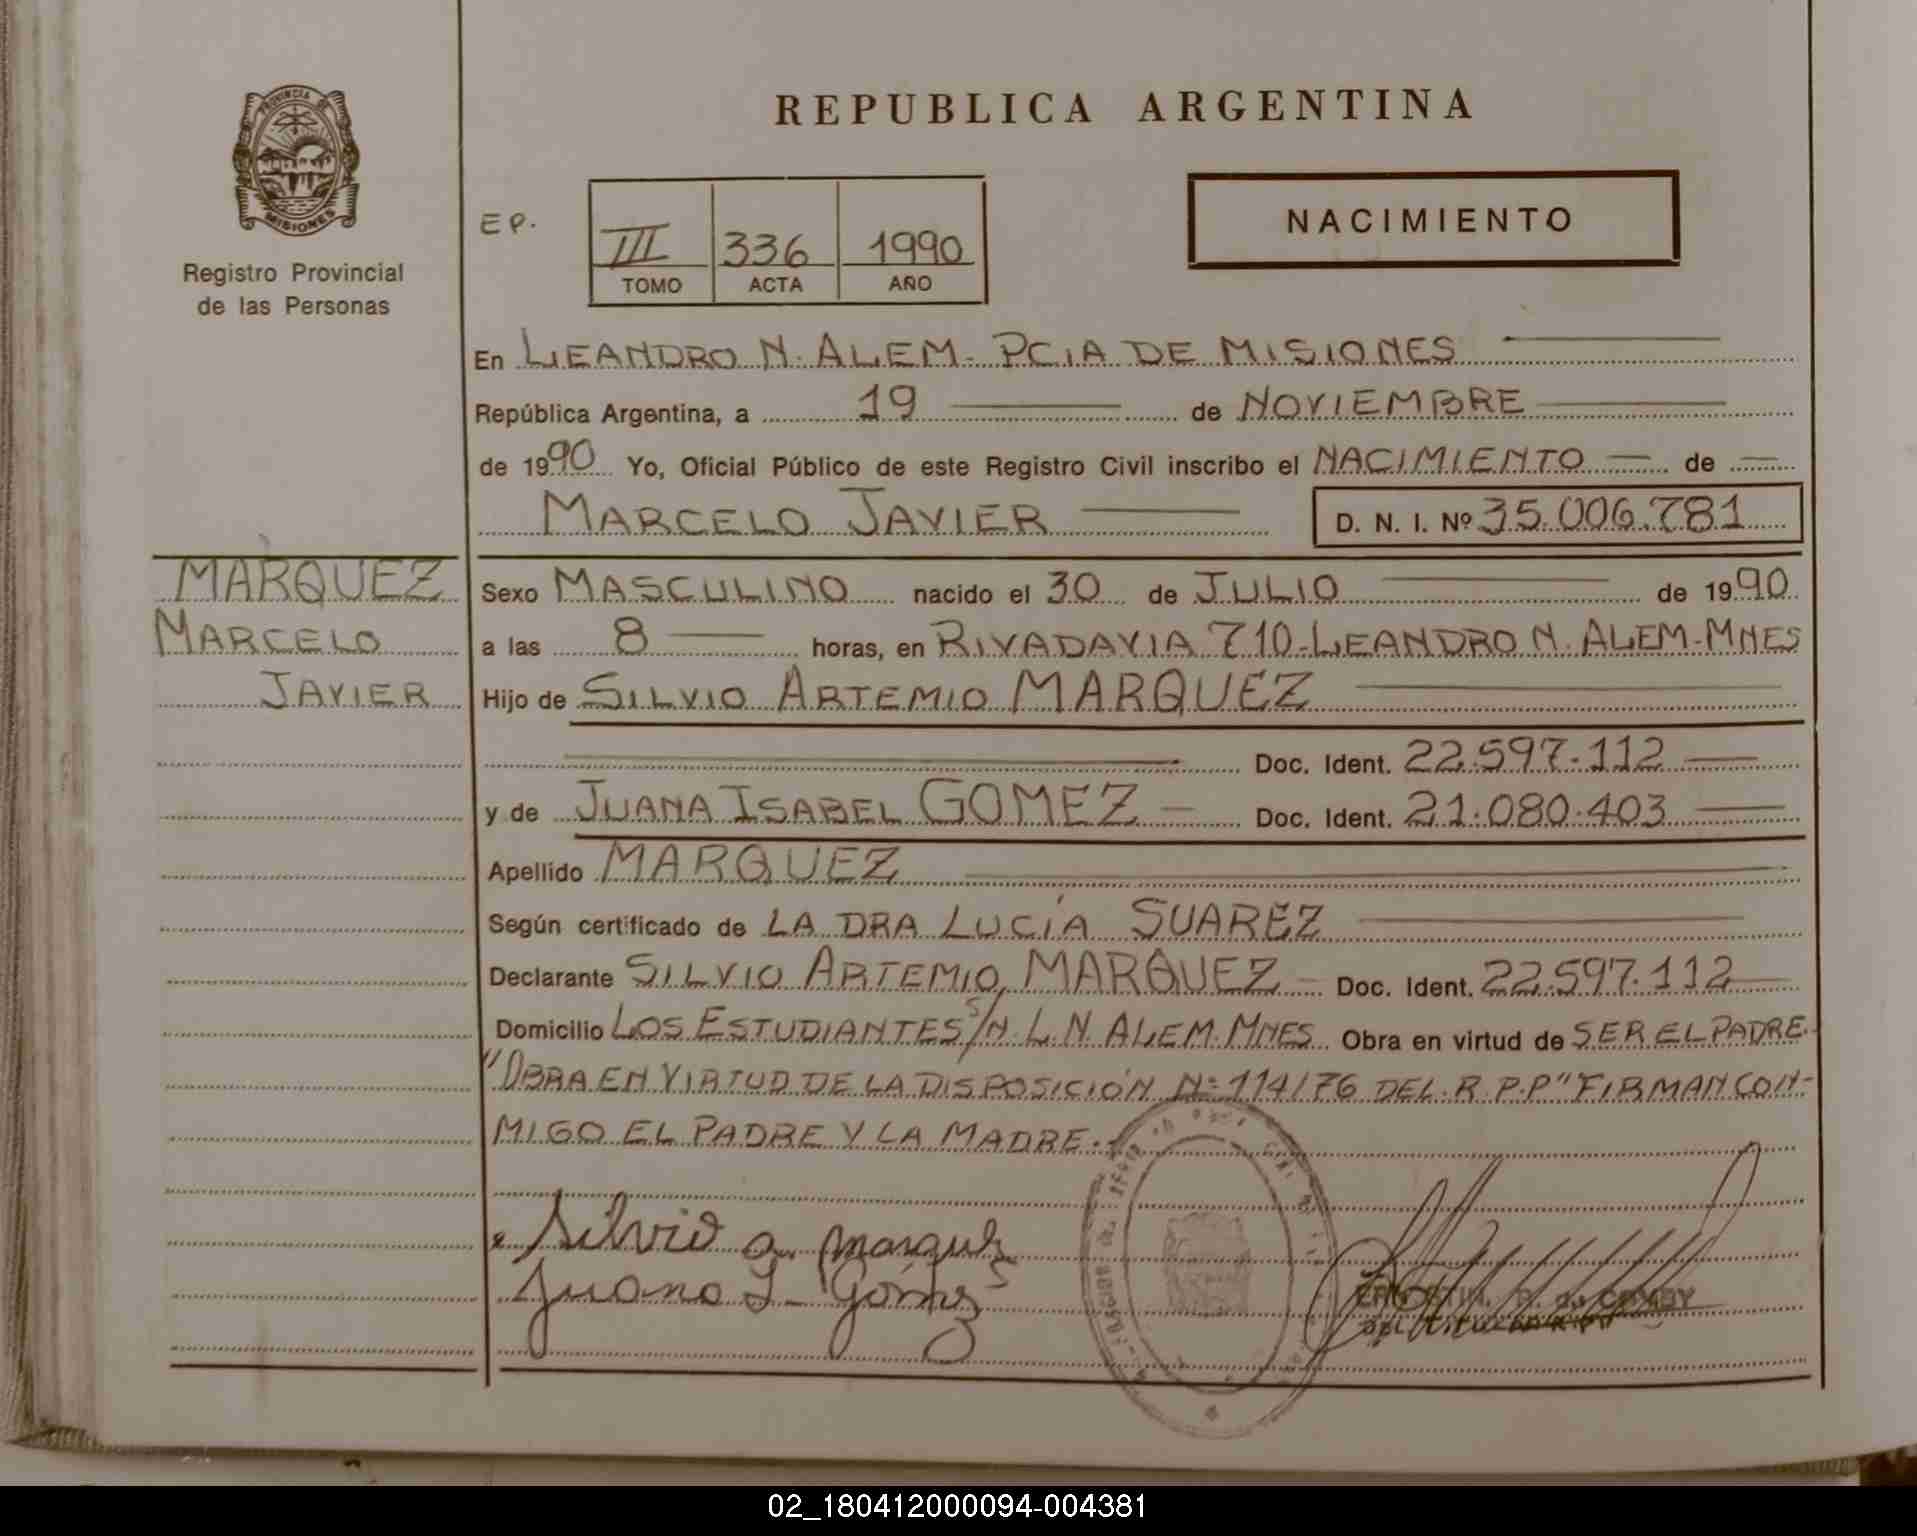 PROVINCIA DE
MISIONES
Registro Provincial
de las Personas
REPUBLICA ARGENTINA
NACIMIENTO
EP.
III 336 1990
TOMO ACTA AÑO
En LEANDRO N. ALEM - PCIA DE MISIONES
República Argentina, a 19 de NOVIEMBRE
de 1990 Yo, Oficial Público de este Registro Civil inscribo el NACIMIENTO de
MARCELO JAVIER D. N. I. Nº 35.006.781
MARQUEZ
MARCELO
JAVIER
Sexo MASCULINO nacido el 30 de JULIO de 1990
a las 8 horas, en RIVADAVIA 710-LEANDRO N. ALEM-MNES
Hijo de SILVIO ARTEMIO MARQUEZ
Doc. Ident. 22.597.112
y de JUANA ISABEL GOMEZ Doc. Ident. 21.080.403
Apellido MARQUEZ
Según certificado de LA DRA LUCÍA SUAREZ
Declarante SILVIO ARTEMIO MARQUEZ Doc. Ident. 22.597.112
Domicilio LOS ESTUDIANTES S/N. L.N. ALEM. MNES Obra en virtud de SER EL PADRE.
"OBRA EN VIRTUD DE LA DISPOSICIÓN Nº 114/76 DEL R.P.P" FIRMAN CON-
MIGO EL PADRE Y LA MADRE.
Silvio a. marquez
Juana I. Gómez
02_180412000094-004381